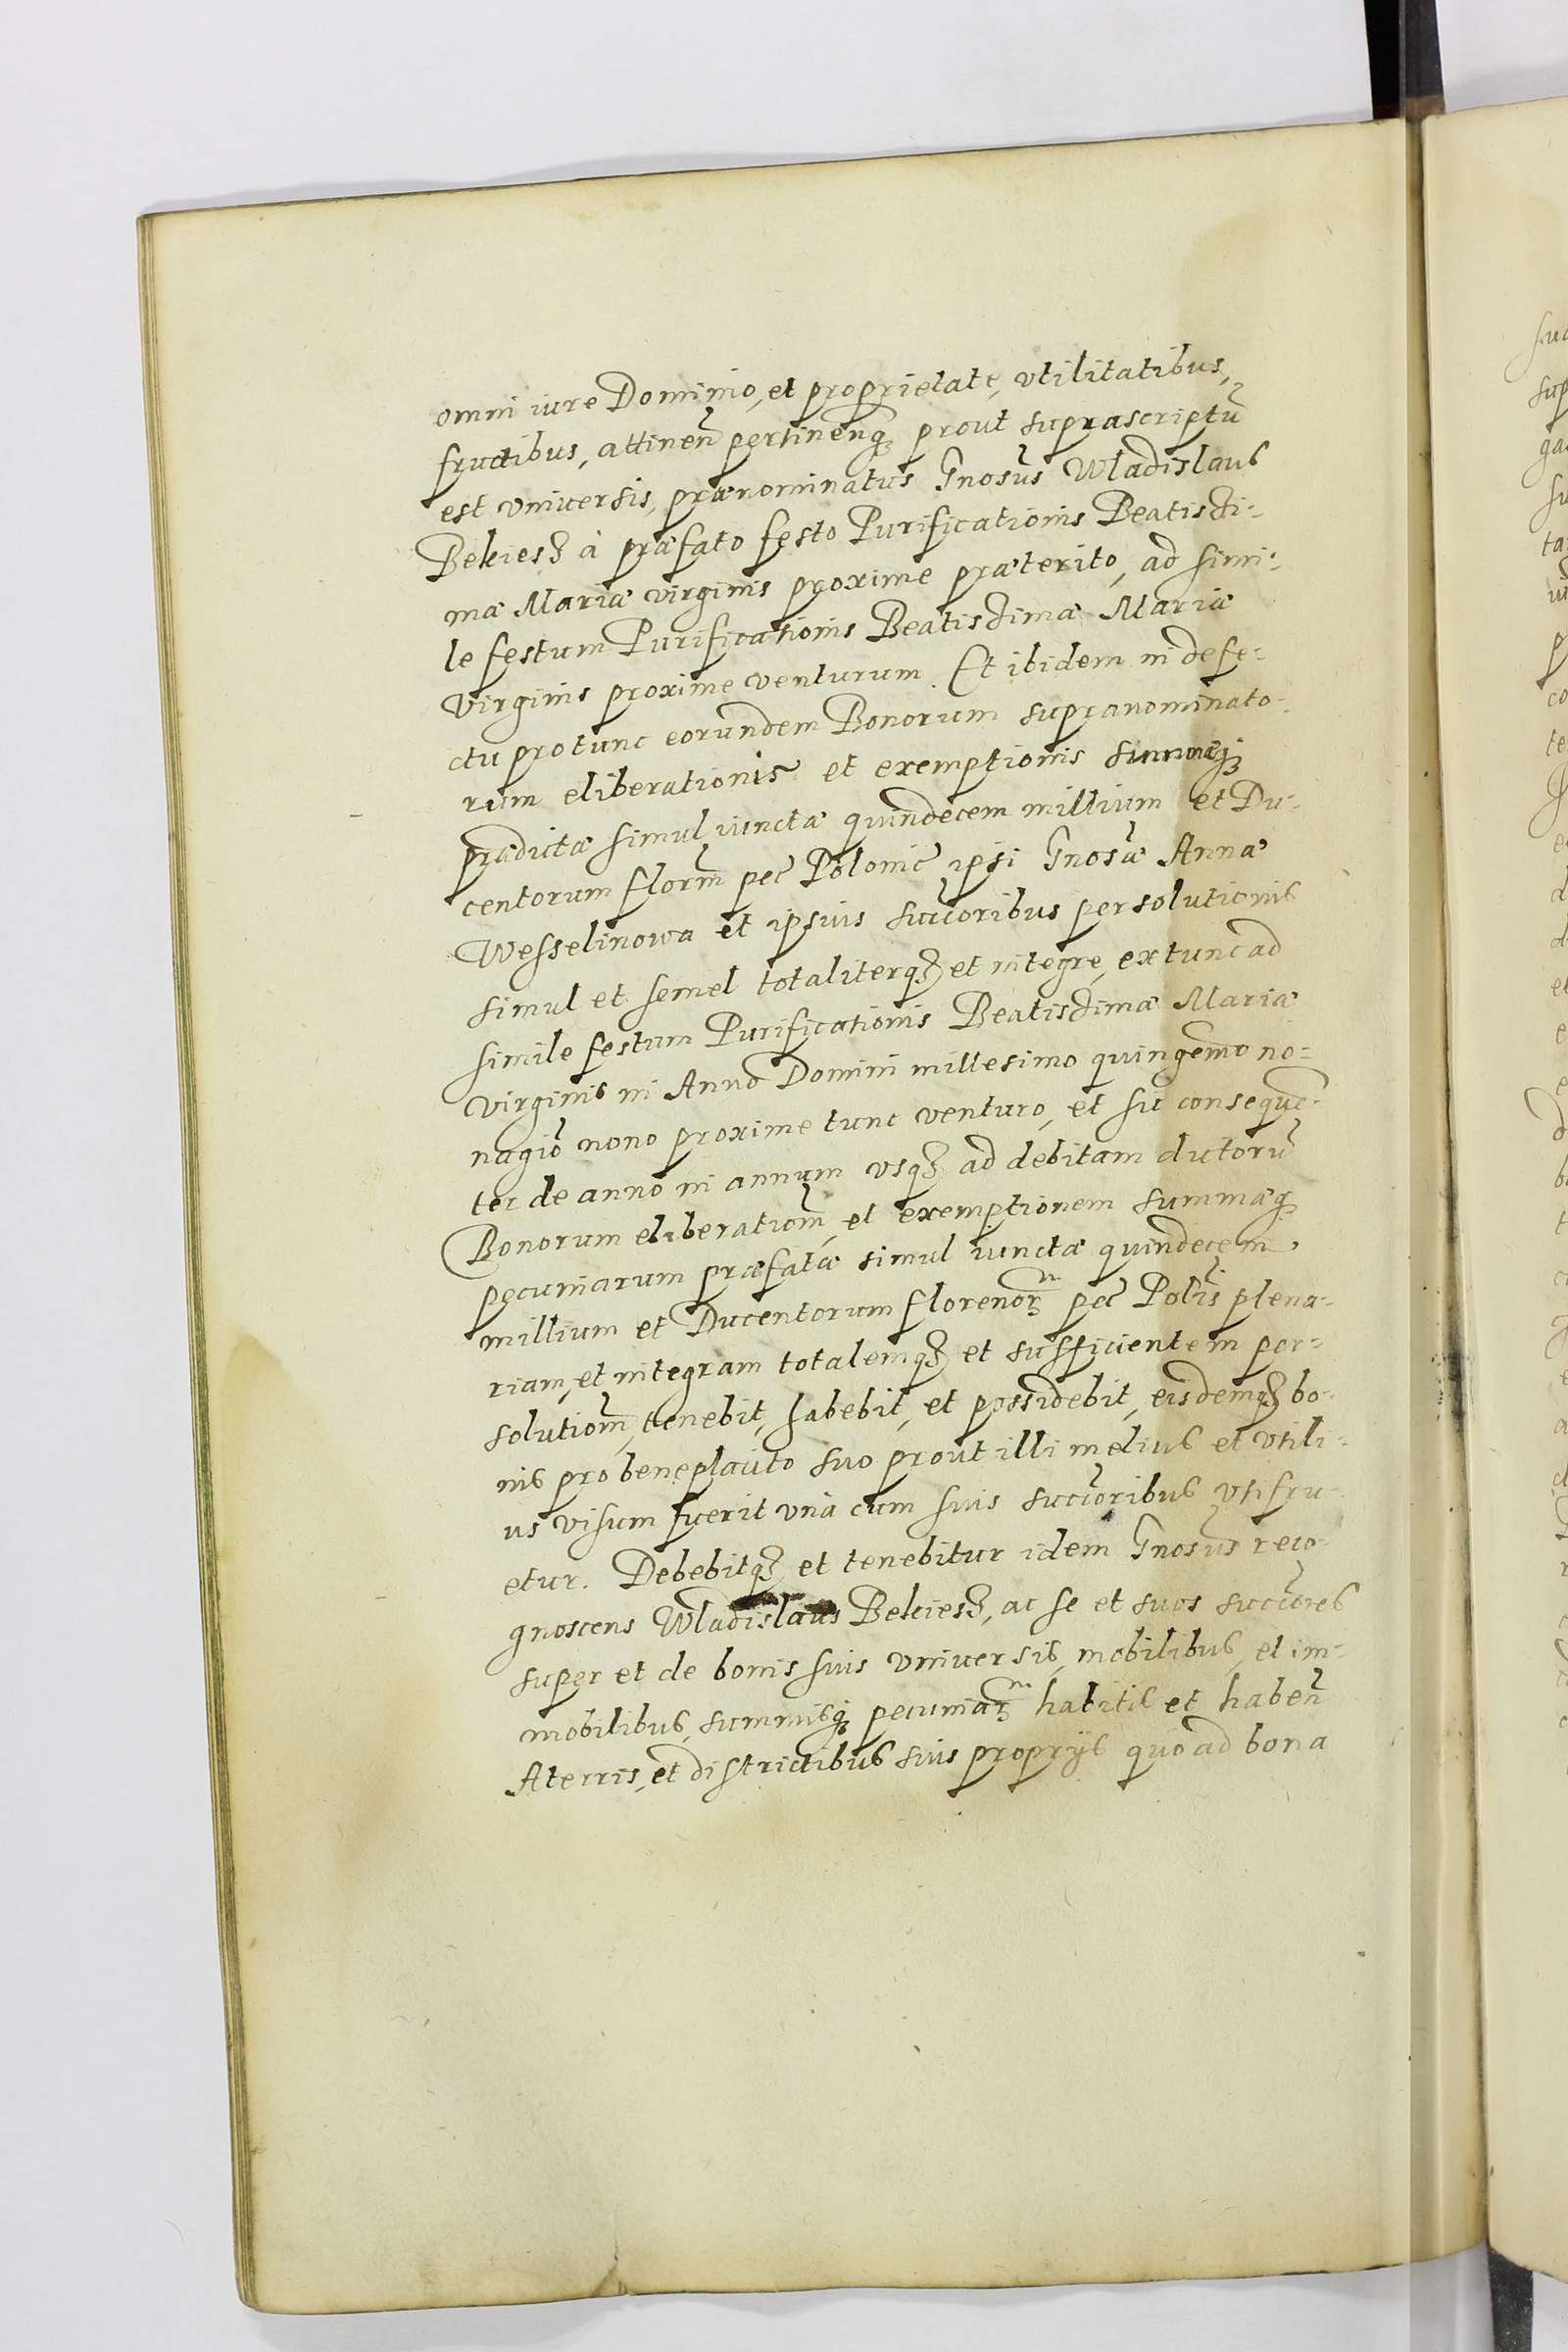 omni iure Dominio, et proprietate, vtilitatibus,
fructibus, attinen̄ pertinen̄q₃ prout suprascriptū
est vniuersis, prænominatus Gnosus Wladislaus
Bekiesz à præfato festo Purificationis Beatissi-
mæ Mariæ virginis proxime præterito, ad simi-
le festum Purificationis Beatissimæ Mariæ
Virginis proxime venturum. Et ibidem in defe-
ctu protunc eorundem Bonorum supranominato-
rum eliberationis et exemptionis summæq₃
prædictæ simul iunctæ quindecem millium et Du-
centorum florm̄ pec̄ Polonic̄ ipsi Gnosæ Annæ
Wesselinowa et ipsius succoribus persolutionis
simul et semel totaliterq₃ et integre, extunc ad
simile festum Purificationis Beatissimæ Mariæ
virginis in Anno Domini millesimo quingemo no-
nagio nono proxime tunc venturo, et sic consequē-
ter de anno in annum vsq₃ ad debitam dictorū
Bonorum eliberatiom̄, et exemptionem summæq₃
pecuniarum præfatæ simul iunctæ quindecem
millium et Ducentorum florenor̄ pec̄ Polis plena-
riam, et integram totalemq₃ et sufficientem per-
solutiom̄, tenebit, habebit, et possidebit, eisdemq₃ bo-
nis pro beneplacito suo prout illi melius et vtili-
us visum fuerit vnà cum suis succoribus vtifru-
etur. Debebitq₃ et tenebitur idem Gnosus reco-
gnoscens Wladislaus Bekiesz, ac se et suos succores
super et de bonis suis vniuersis, mobilibus, et im-
mobilibus, summisq₃ pecuniar̄ habitis et haben̄
A terris, et districtibus suis proprijs quo ad bona